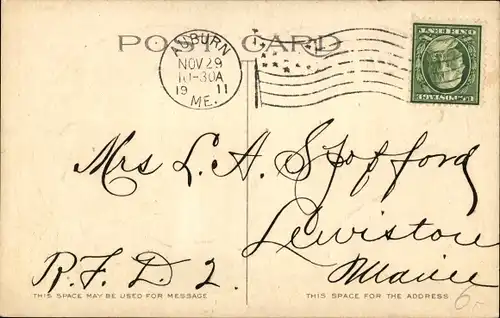 POST CARD
AUBURN
NOV 29
10-30A
19 11
ME.
ONE CENT
U.S. POSTAGE
Mrs L. A. Stofford
Lewiston
R. F. D. 2.
Maine
THIS SPACE MAY BE USED FOR MESSAGE
THIS SPACE FOR THE ADDRESS
6.-